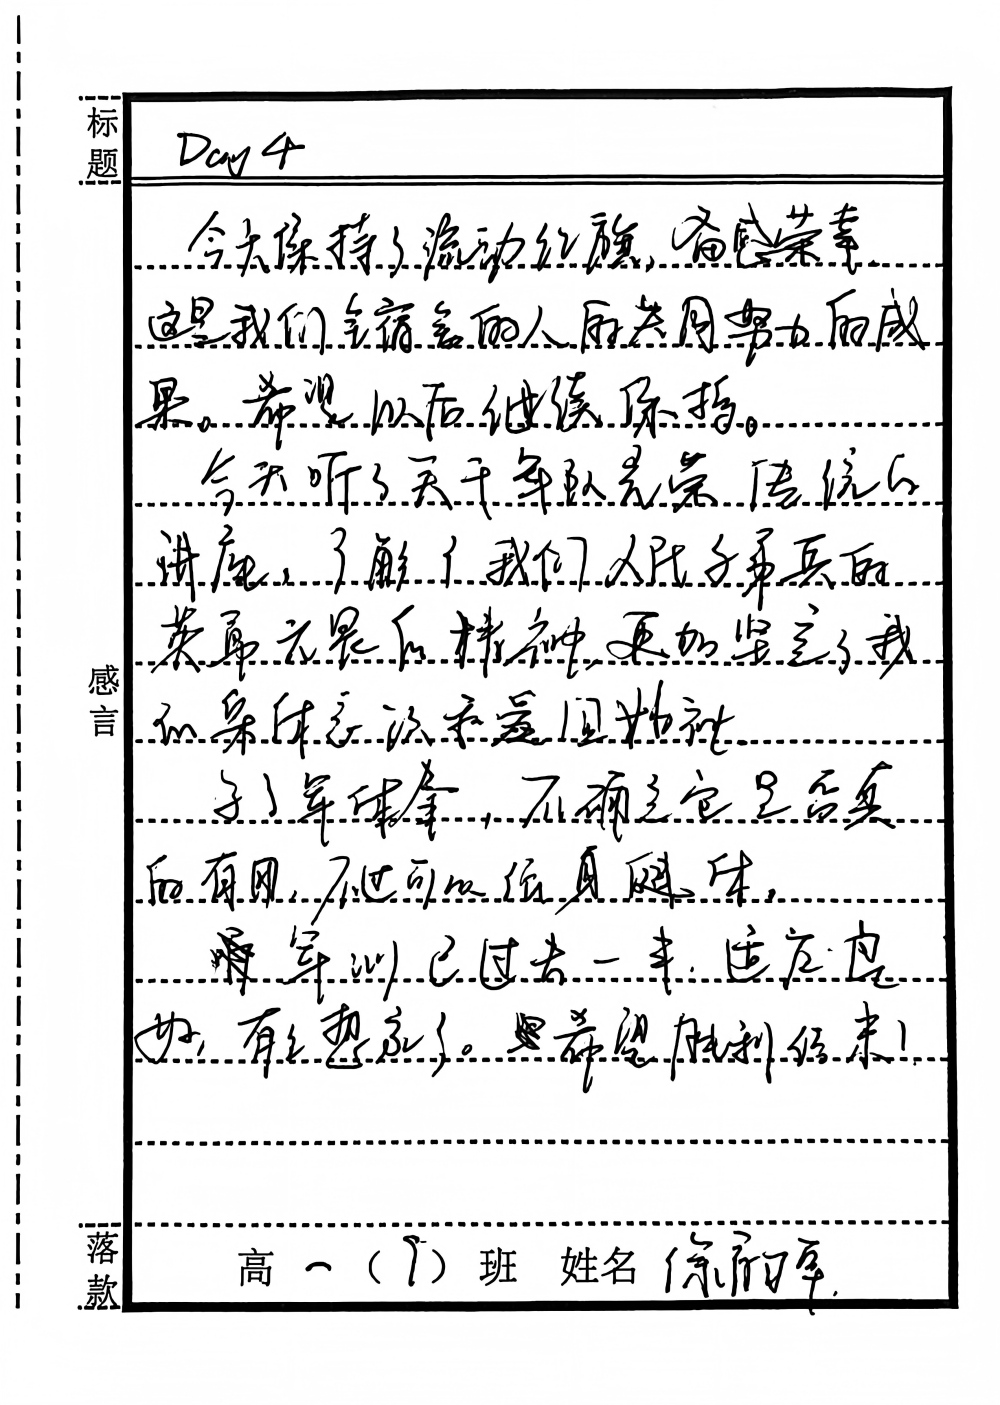 标题
Day 4
今天保持了流动红旗，备感荣幸.
这是我们全宿舍的人的共同努力的成
果。希望以后继续保持。
今天听了关于军队光荣传统的
讲座，了解了我们人民子弟兵的
英勇无畏的精神，更加坚定了我
的集体意识和爱国精神.
学了军体拳，不确定它是否真
的有用，不过可以
军训已过去一半，适应良
好，有点想家了。希望胜利结束！
感言
落款
高一（9）班 姓名 徐